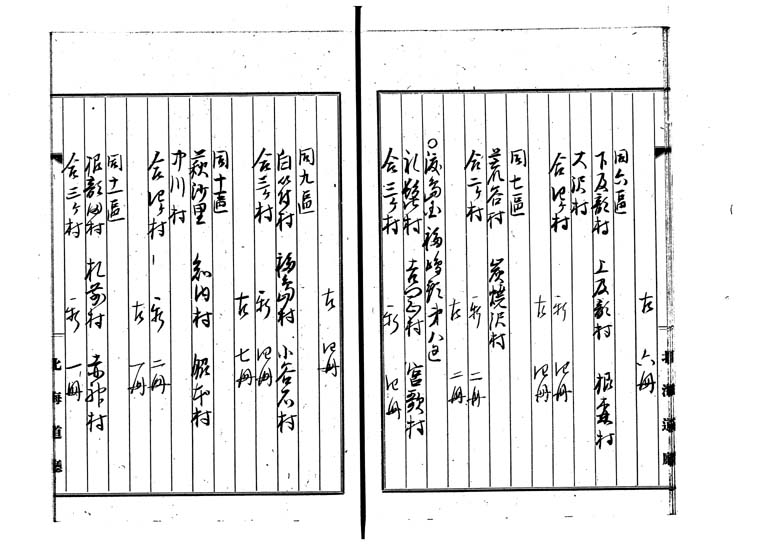 古 六冊
同六區
下及部村 上及部村 根森村
大沢村
合四ケ村 新 四冊
古 四冊
同七區
荒谷村 炭焼沢村
合二ケ村 新 二冊
古 二冊
○渡島国福島郡第八區
礼髭村 吉岡村 宮歌村
合三ケ村 新 四冊
北海道廳
古 四冊
同九區
白符村 福島村 小谷石村
合三ケ村 新 四冊
古 七冊
同十區
萩沙里 知内村 脇本村
中川村
合四ケ村 新 二冊
古 一冊
同十一區
根部田村 札前村 赤神村
合三ケ村 新 一冊
北海道廳